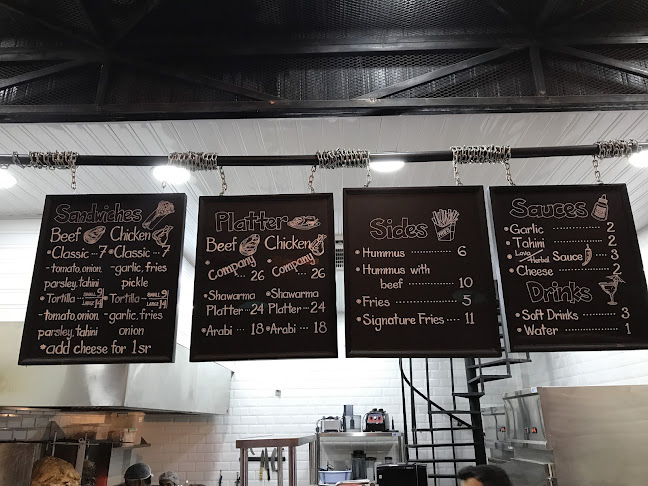 Sandwiches
Beef Chicken
•Classic ··7 •Classic ··7
-tomato, onion, -garlic, fries
parsley, tahini pickle
•Tortilla ··SMALL 9 •Tortilla ··SMALL 9
LARGE 14 LARGE 14
-tomato, onion, -garlic, fries,
parsley, tahini onion
•add cheese for 1 sr
Platter
Beef Chicken
•Company •Company
·· 26 ·· 26
•Shawarma •Shawarma
Platter ··24 Platter ··24
•Arabi ·· 18 •Arabi ·· 18
Sides
•Hummus ············ 6
•Hummus with
beef ············ 10
•Fries ············ 5
•Signature Fries ···· 11
Sauces
•Garlic ············ 2
•Tahini ············ 2
•Lava/Herbal Sauce 3
•Cheese ············ 2
Drinks
•Soft Drinks ········ 3
•Water ············ 1